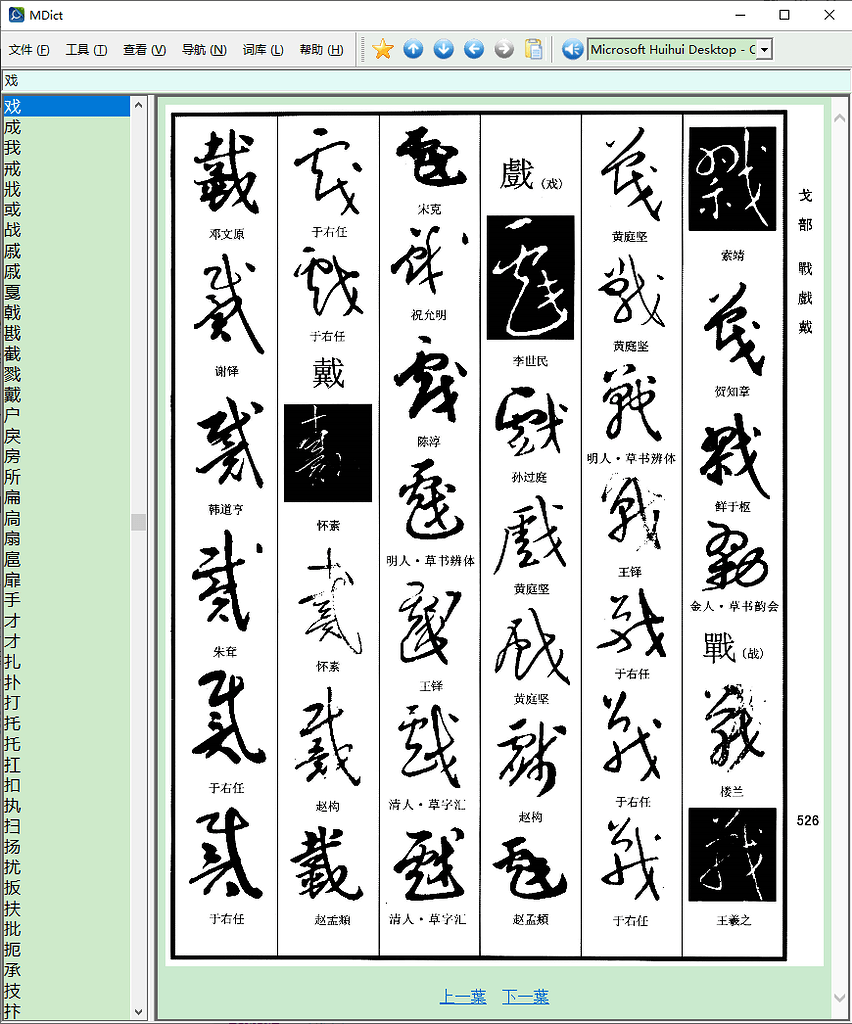 MDict
文件 (F) 工具 (T) 查看 (V) 导航 (N) 词库 (L) 帮助 (H)
Microsoft Huihui Desktop - C
戏
戏
成
我
戒
戕
或
战
戚
戚
戛
戟
戡
截
戮
戴
户
戾
房
所
扁
扃
扇
扈
扉
手
才
才
扎
扑
打
托
托
扛
扣
执
扫
扬
扰
扳
扶
批
扼
承
技
抃
戈部 戰戲戴
526
索靖
贺知章
鲜于枢
金人·草书韵会
戰(战)
楼兰
王羲之
黄庭坚
黄庭坚
明人·草书辨体
王铎
于右任
于右任
于右任
戲(戏)
李世民
孙过庭
黄庭坚
黄庭坚
赵构
赵孟頫
宋克
祝允明
陈淳
明人·草书辨体
王铎
清人·草字汇
清人·草字汇
于右任
于右任
戴
怀素
怀素
赵构
赵孟頫
邓文原
谢铎
韩道亨
朱耷
于右任
于右任
上一葉 下一葉